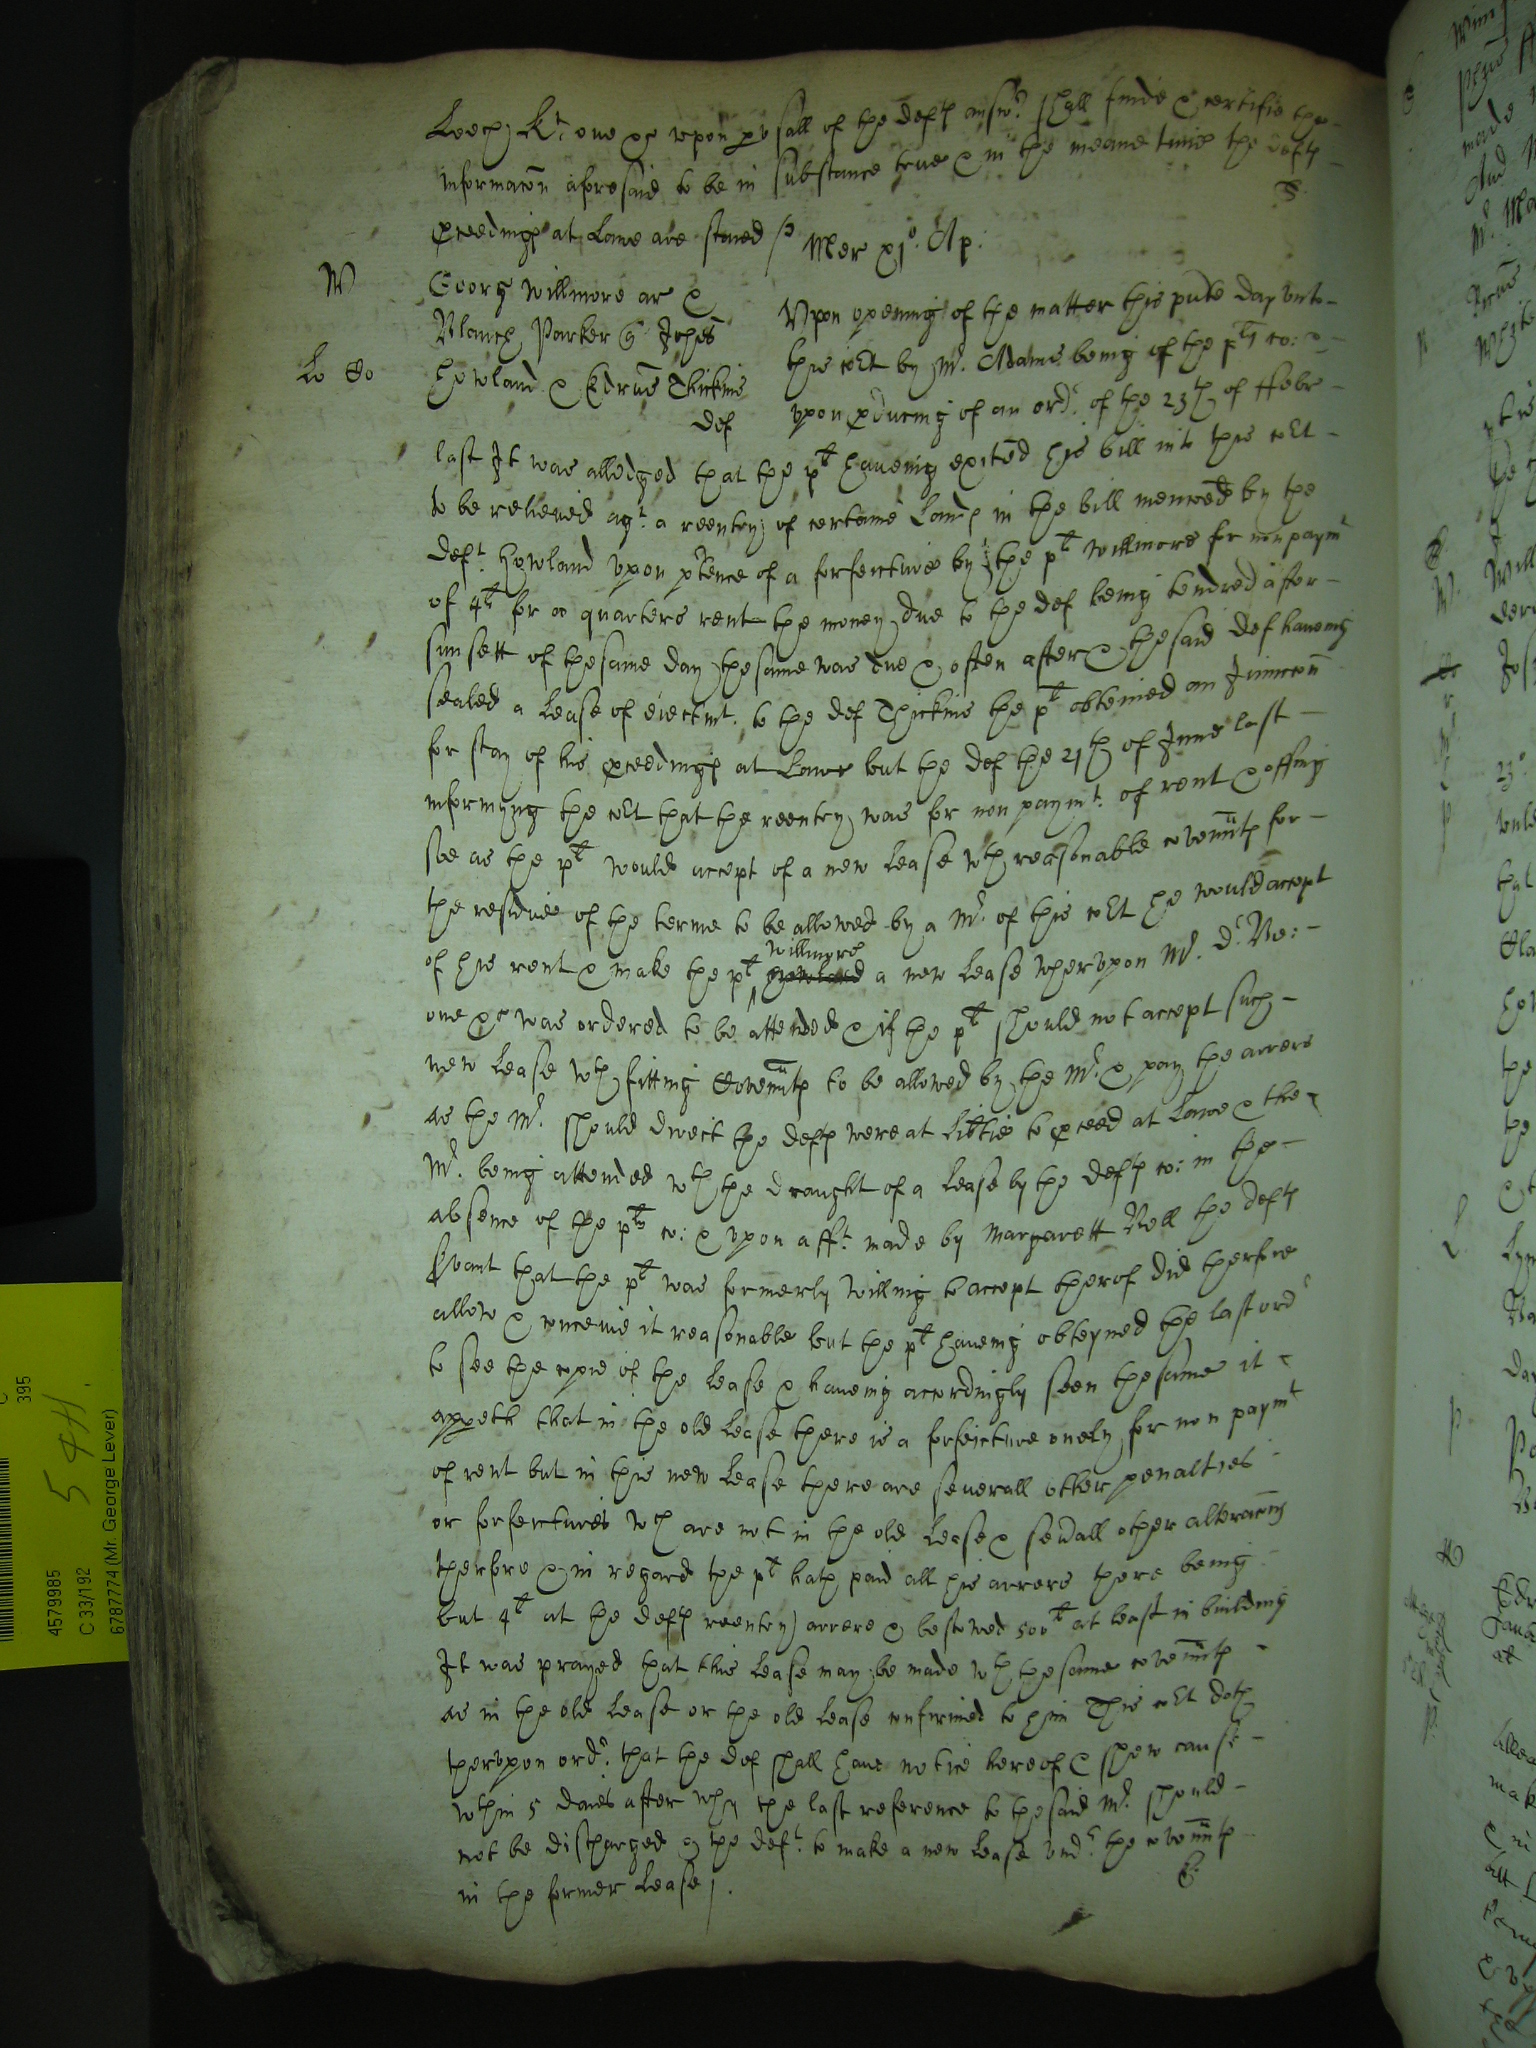 Leech Kt. one &c upon pusall of the deftes answ: shall finde & certifie the
informacõn aforesaid to be in substance true & in the meane time the deftes
pceedinges at Lawe are stayed /
Mer xjo. Ap:
W
Georg Willmore ar &
Blanch Parker q Johes
Howland & Edrus Thickins
def
Upon opening of the matter this pnte day unto
this cort by Mr. Adams being of the plts co: &
upon pducing of an ordr. of the 23th of ffebr
last It was alledged that the plt haveing exited his bill into this cort
to be releived agt. a reentry of certaine Landes in the bill mencoed by the
deft. Howland upon ptence of a forfeiture by the plt Willmore for non paymt
of 4li for a quarters rent the money due to the def being tendred after
sunsett of the same day the same was due & often after & the said def haveing
sealed a Lease of eiectmt. to the def Thickins the plt obteined an Iniunccõn
for stay of his pceedinges at Lawe but the def the 21th of June last
informyng the cort that the reentry was for non paymt. of rent & offring
soe as the plt would accept of a new Lease wth reasonable covennts for
the residue of the terme to be allowed by a Mr. of this cort he would accept
of his rent & make the plt Willmore a new Lease wherupon Mr. Dr. Be:
one &c was ordered to be attended & if the plt should not accept such
new Lease wth fitting Covennts to be allowed by the Mr. & pay the arrers
as the Mr. should direct the deftes were at Libtie to pceed at Lawe & the
Mr. being attended wth the draught of a Lease by the deftes co: in the
absence of the plts co: & upon afft. made by Margarett Bell the deftes
servant that the plt was formerly willing to accept therof did therfore
allow & conceive it reasonable but the plt haveing obteyned the last ordr
to see the copie of the Lease & haveing accordingly seen the same it
appeth that in the old Lease there is a forfeicture onely for non paymt
of rent but in this new Lease there are severall other penalties
or forfeictures wch are not in the old Lease & sevall other alteracõns
therfore & in regard the plt hath paid all his arrers there being
but 4li at the deftes reentry arrere & bestowed 500li at least in building
It was prayed that this Lease may be made wth the same covennts
as in the old Lease or the old Lease confirmed to him This cort doth
therupon ordr. that the def shall have notice hereof & shew cause
wthin 5 daies after why the last reference to the said Mr. should
not be discharged & the deft. to make a new Lease undr the covennts
in the former Lease /.
395
5441.
4579985
C 33/192
6787774 (Mr. George Lever)